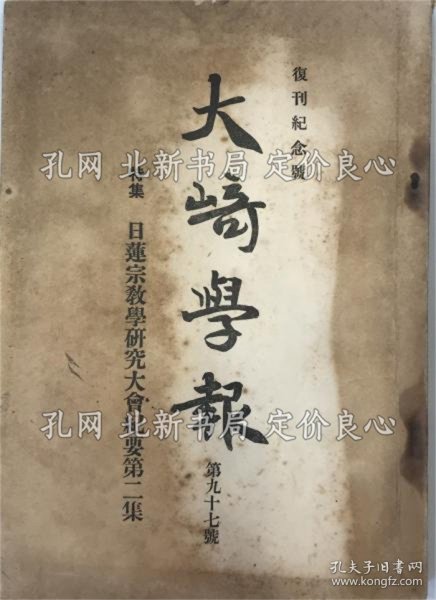 復刊紀念號
大﨑學報
第九十七號
集 日蓮宗教學研究大會紀要第二集
孔网 北新书局 定价良心
孔网 北新书局 定价良心
孔夫子旧书网
www.kongfz.com